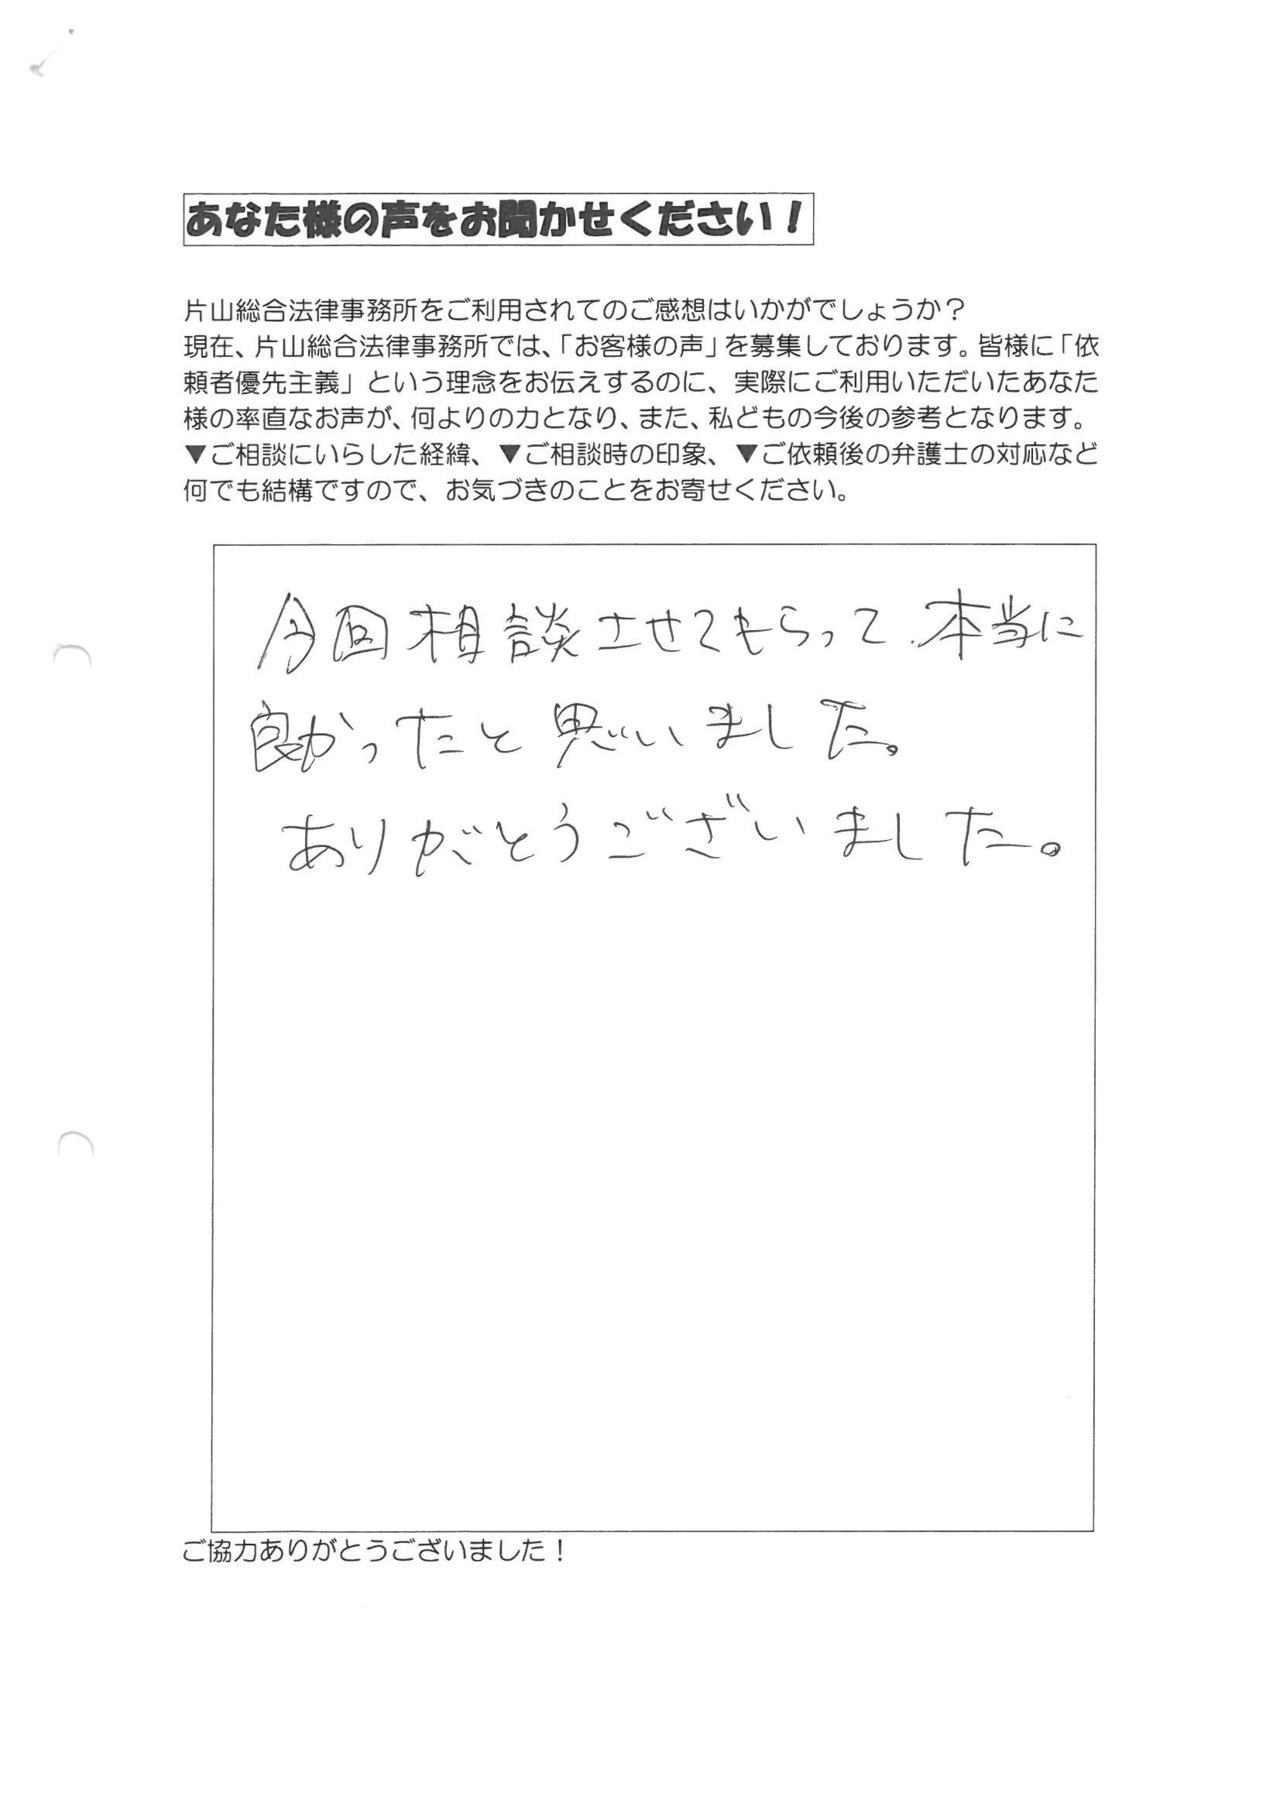 あなた様の声をお聞かせください！
片山総合法律事務所をご利用されてのご感想はいかがでしょうか？
現在、片山総合法律事務所では、「お客様の声」を募集しております。皆様に「依
頼者優先主義」という理念をお伝えするのに、実際にご利用いただいたあなた
様の率直なお声が、何よりの力となり、また、私どもの今後の参考となります。
▼ご相談にいらした経緯、▼ご相談時の印象、▼ご依頼後の弁護士の対応など
何でも結構ですので、お気づきのことをお寄せください。
今回相談させてもらって、本当に
良かったと思いました。
ありがとうございました。
ご協力ありがとうございました！